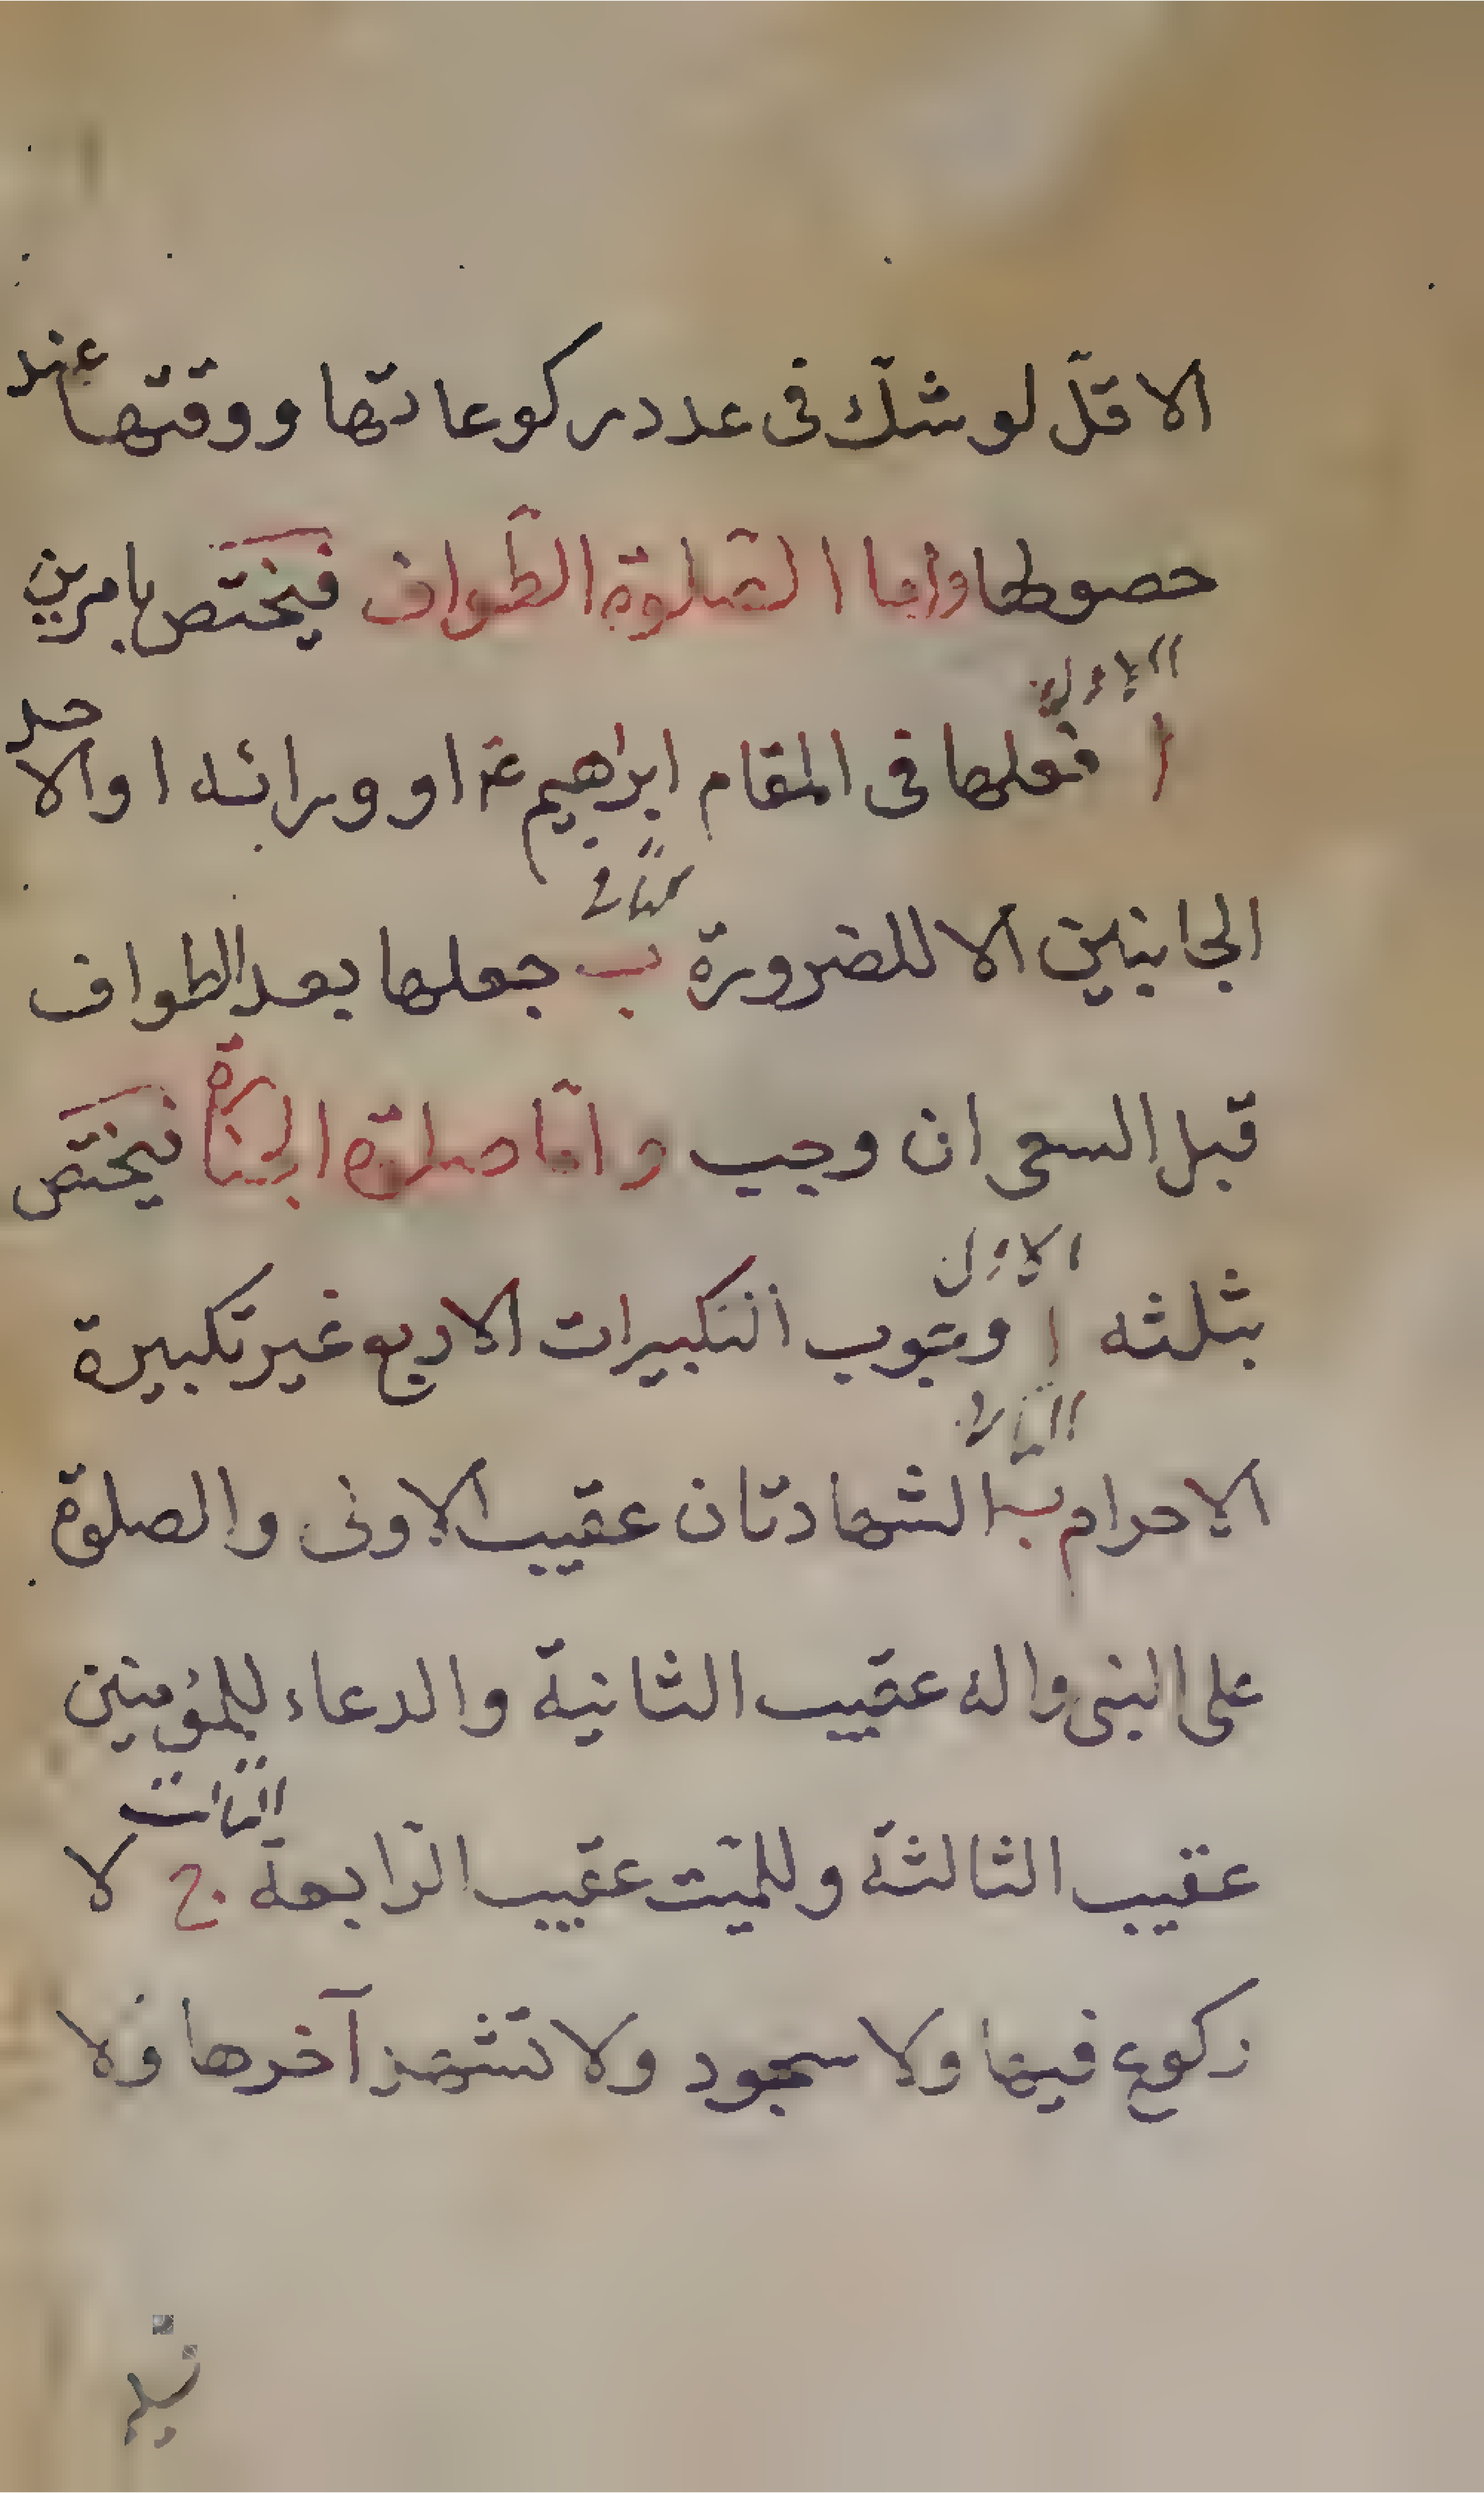 الاقلّ لو شكّ فى عدد ركوعاتها ووقتها عند
حصولها واما الصلوة الطّواف فيختص بامرين
الاول
ا فعلها فى المقام ابراهيم عم او ورائه او الاحد
الجانبين الا للضرورة ب جعلها بعد الطواف
قبل السعى ان وجب وامّا صلوة الجنازة فيختص
الاول
بثلثه ا وجوب التكبيرات الاربع غير تكبيرة
الثانى
الاحرام ب الشهادتان عقيب الاولى والصلوة
على النبى واله عقيب الثانية والدعاء للمؤمنين
عقيب الثالثة وللميّت عقيب الرّابعة ج لا
ركوع فيها ولا سجود ولا تشهد آخرها ولا